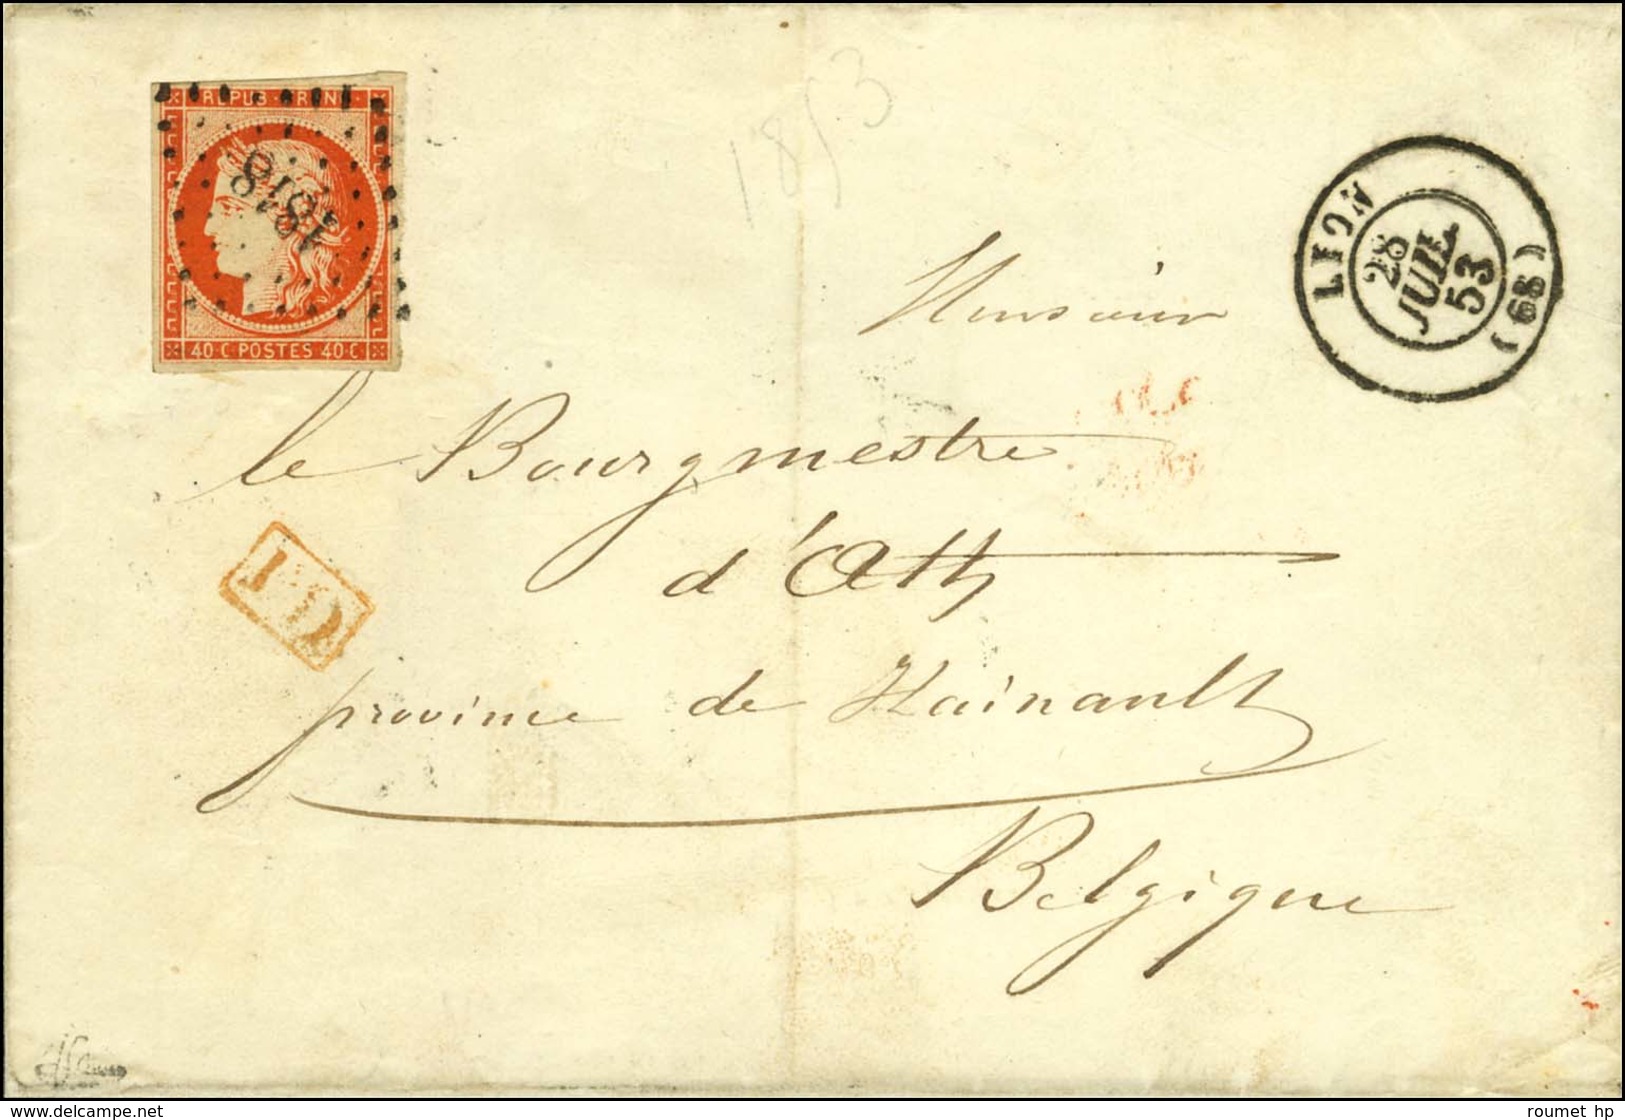 REPUB FRANC
1818
40·C POSTES 40·C
1853
LYON
28
JUIL
53
(68)
Monsieur
le Bourgmestre
d'Ath
P.D.
province de Hainault
Belgique
www.delcampe.net
roumet hp